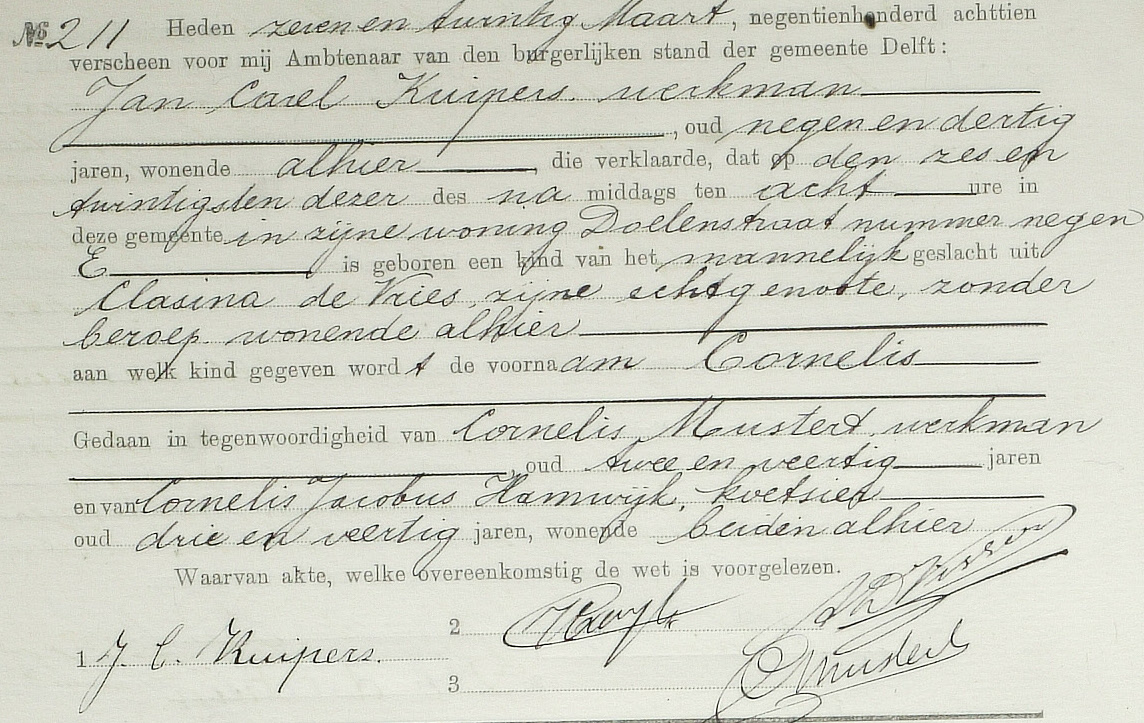 No. 211 Heden zeven en twintig Maart, negentienhonderd achttien
verscheen voor mij Ambtenaar van den burgerlijken stand der gemeente Delft:
Jan Carel Kuipers, werkman
, oud negen en dertig
jaren, wonende alhier, die verklaarde, dat op den zes en
twintigsten dezer des na middags ten acht ure in
deze gemeente in zijne woning Doelenstraat nummer negen
E is geboren een kind van het mannelijk geslacht uit
Clasina de Vries, zijne echtgenoote, zonder
beroep wonende alhier
aan welk kind gegeven wordt de voornaam Cornelis
Gedaan in tegenwoordigheid van Cornelis Mustert, werkman
, oud twee en veertig jaren
en van Cornelis Jacobus Hamwijk, koetsier
oud drie en veertig jaren, wonende beiden alhier
Waarvan akte, welke overeenkomstig de wet is voorgelezen.
2
1 J. C. Kuipers.
3 C Mustert